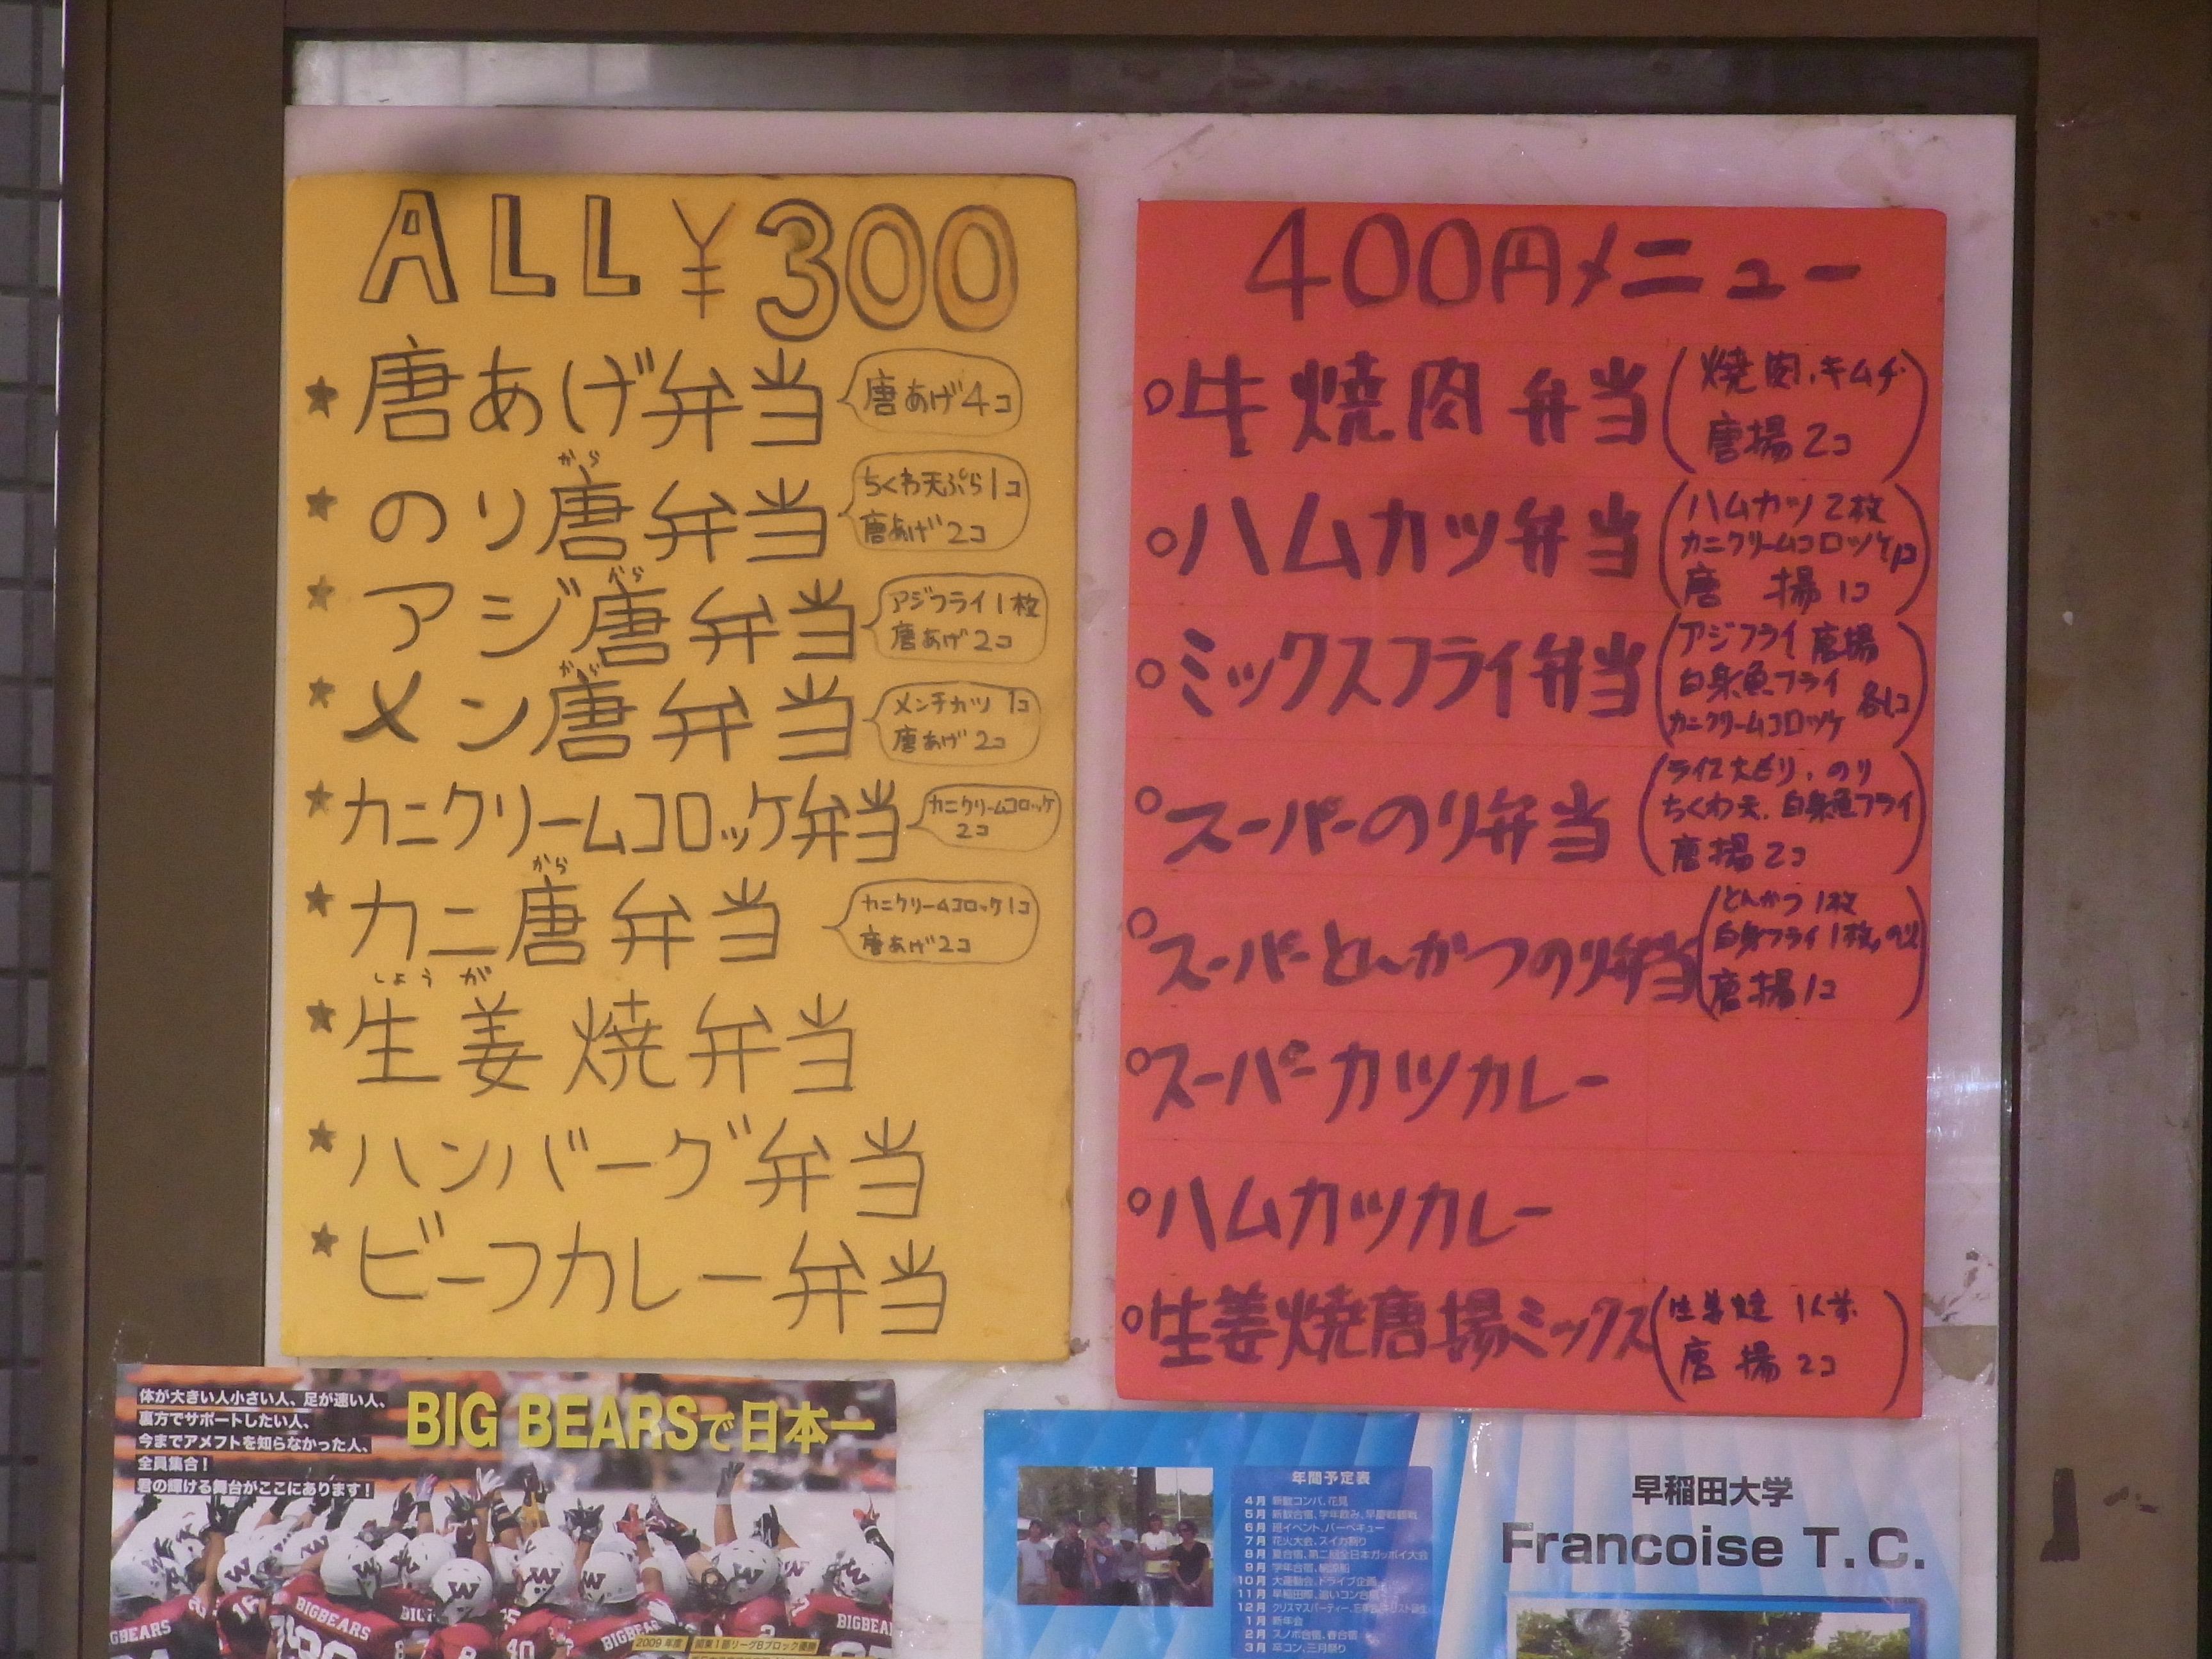 ALL ¥300
★唐あげ弁当
唐あげ4コ
から
★のり唐弁当
ちくわ天ぷら1コ
唐あげ2コ
から
★アジ唐弁当
アジフライ1枚
唐あげ2コ
から
★メン唐弁当
メンチカツ 1コ
唐あげ 2コ
★カニクリームコロッケ弁当
カニクリームコロッケ
2コ
から
★カニ唐弁当
カニクリームコロッケ1コ
唐あげ2コ
しょうが
★生姜焼弁当
★ハンバーグ弁当
★ビーフカレー弁当
400円メニュー
○牛焼肉弁当
(焼肉.キムチ
唐揚2コ)
○ハムカツ弁当
(ハムカツ2枚
カニクリームコロッケ1コ
唐 揚 1コ)
○ミックスフライ弁当
(アジフライ 唐揚
白身魚フライ 各1コ
カニクリームコロッケ)
○スーパーのり弁当
(ライス大もり.のり
ちくわ天.白身魚フライ
唐揚2コ)
○スーパーとんかつのり弁当
(とんかつ1枚
白身フライ1枚,のり
唐揚1コ)
○スーパーカツカレー
○ハムカツカレー
○生姜焼唐揚ミックス
(生姜焼 1人前
唐 揚 2コ)
体が大きい人小さい人、足が速い人、
裏方でサポートしたい人、
今までアメフトを知らなかった人、
全員集合!
君の輝ける舞台がここにあります!
BIG BEARSで日本一
BIGBEARS
BIGBEARS
2009年度 関東1部リーグBブロック優勝
年間予定表
4月 新歓コンパ、花見
5月 新歓合宿、学年飲み、早慶戦観戦
6月 班イベント、バーベキュー
7月 花火大会、スイカ割り
8月 夏合宿、第二回全日本ガッポイ大会
9月 学年合宿
10月 大運動会、ドライブ企画
11月 早稲田祭、追いコン合宿
12月 クリスマスパーティー
1月 新年会
2月 スノボ合宿、春合宿
3月 卒コン、三月祭り
早稲田大学
Francoise T.C.